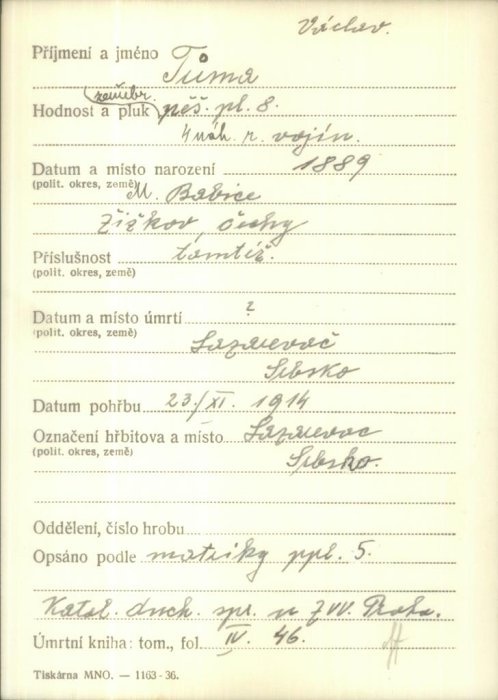 Václav.
Příjmení a jméno Tůma
zeměbr.
Hodnost a pluk pěš. pl. 8.
4 náh. r. vojín.
Datum a místo narození 1889
(polit. okres, země) M. Babice
Žižkov, Čechy
Příslušnost tamtéž.
(polit. okres, země)
Datum a místo úmrtí ?
(polit. okres, země) Lazarevač
Srbsko
Datum pohřbu 23./XI. 1914
Označení hřbitova a místo Lazarevac
(polit. okres, země) Srbsko.
Oddělení, číslo hrobu
Opsáno podle matriky ppl. 5.
Katol. duch. spr. u ZVV. Praha.
Úmrtní kniha: tom., fol. IV. 46.
Tiskárna MNO. — 1163 - 36.